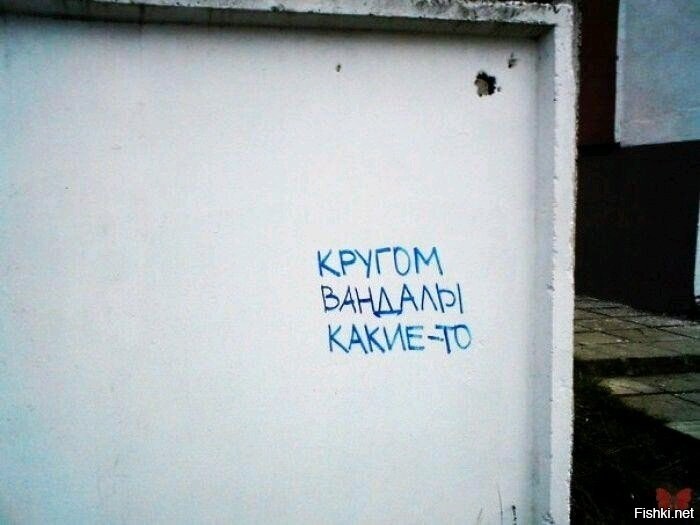 КРУГОМ
ВАНДАЛЫ
КАКИЕ-ТО
Fishki.net